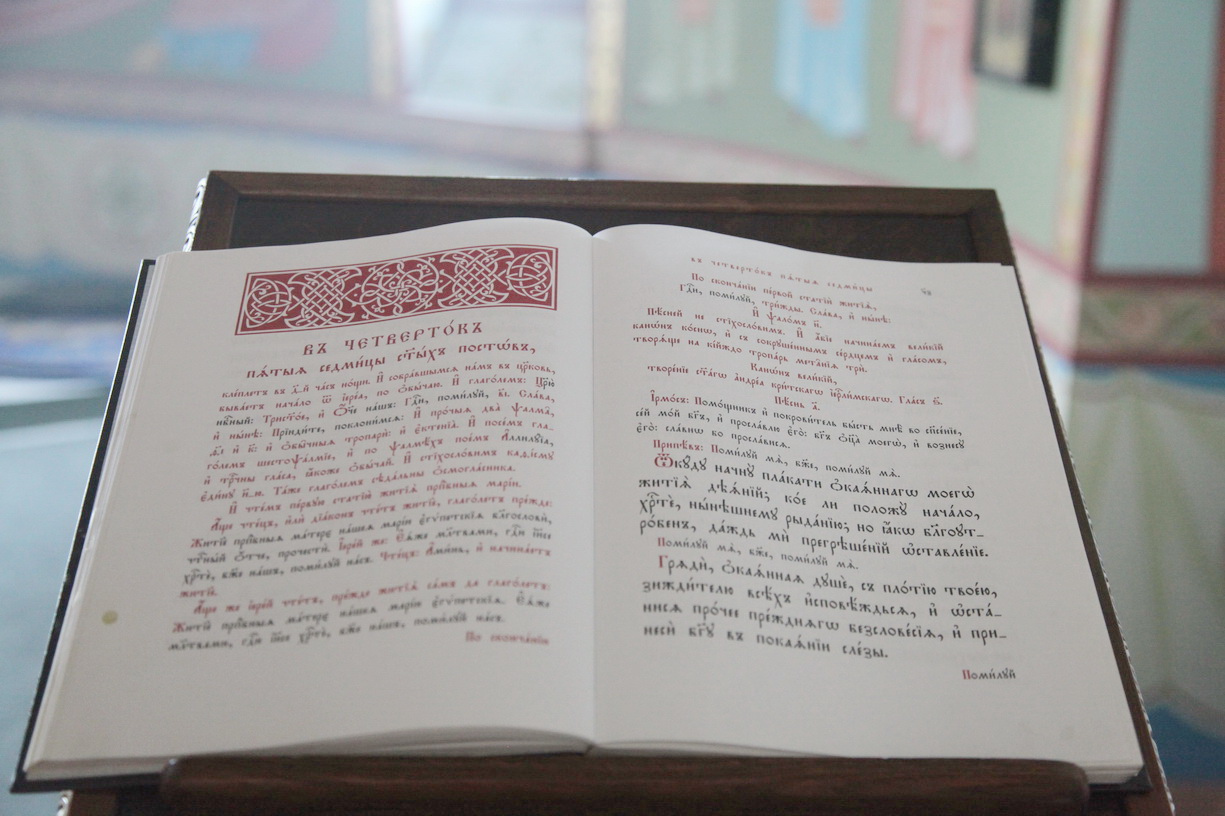 ВЪ ЧЕТВЕРТО́КЪ
ПѦ́ТЫѦ СЕДМИ́ЦЫ СТ҃ЫХЪ ПОСТѠ́ВЪ,
клѐплетъ въ д҃-й ча́съ но́щи. И҆ собра́вшымсѧ на́мъ въ цр҃ковь,
быва́етъ нача́ло ѿ і҆ере́а, по ѻ҆бы́чаю. И҆ глаго́лемъ: Цр҃ю̀
нб҃ный: Трист҃о́е, и҆ Ѻ҆́ч҃е на́шъ: Гд҇и, поми́лꙋй, в҃і. Сла́ва,
и҆ ны́нѣ: Прїиди́те, поклони́мсѧ: И҆ про́чыѧ два̀ ѱалма̑,
и҆ ѻ҆бы̑чныѧ тропари̑: и҆ є҆ктенїа̀. И҆ пое́мъ гла-
го́лемъ шестоѱа́лмїе, и҆ по ѱалмѣ́хъ пое́мъ А҆ллилꙋ́їа,
и҆ трⷪ҇чны гла́са, ꙗ҆́коже ѻ҆бы́чай. И҆ стїхосло́вимъ каѳі́смꙋ
є҆ди́нꙋ н҃-ю. Та́же глаго́лемъ сѣда̑льны ѻ҆смогла́сника.
И҆ чте́мъ пе́рвꙋю статїю̀ житїѧ̀ прпⷣбныѧ марі́и.
А҆́ще чте́цъ, и҆лѝ дїа́конъ чте́тъ житїѐ, глаго́летъ пре́жде:
Житїѐ прпⷣбныѧ ма́тере на́шеѧ марі́и є҆гѵ́петскїѧ благословѝ,
чⷭ҇тны́й ѻ҆́тче, прочестѝ. І҆ере́й же: Є҆ѧ́же мл҃твами, гдⷭ҇и і҆и҃се
хрⷭ҇тѐ, бж҃е на́шъ, поми́лꙋй на́съ. Чте́цъ: А҆ми́нь, и҆ начина́етъ
житїѐ.
А҆́ще же і҆ере́й чте́тъ, пре́жде житїѧ̀ са́мъ да глаго́летъ:
Житїѐ прпⷣбныѧ ма́тере на́шеѧ марі́и є҆гѵ́петскїѧ. Є҆ѧ́же
мл҃твами, гдⷭ҇и і҆и҃се хрⷭ҇тѐ, бж҃е на́шъ, поми́лꙋй на́съ.
По сконча́нїи
въ четверто́къ пѧ́тыѧ седми́цы
По сконча́нїи пе́рвой статїѝ житїѧ̀,
Гдⷭ҇и, поми́лꙋй, три́жды. Сла́ва, и҆ ны́нѣ:
И҆ ѱало́мъ н҃.
Пѣ́сней не стїхосло́вимъ. И҆ а҆́бїе начина́емъ вели́кїй
канѡ́нъ ко́снѡ, и҆ съ сокрꙋше́ннымъ се́рдцемъ и҆ гла́сомъ,
творѧ́ще на кі́йждо тропа́рь мета̑нїѧ трѝ.
Канѡ́нъ вели́кїй,
творе́нїе ст҃а́гѡ а҆ндре́а кри́тскагѡ і҆ерⷭ҇ли́мскагѡ. Гла́съ ѕ҃.
Пѣ́снь а҃.
І҆рмо́съ: Помо́щникъ и҆ покрови́тель бы́сть мнѣ̀ во сп҃се́нїе,
се́й мо́й бг҃ъ, и҆ просла́влю є҆го̀: бг҃ъ ѻ҆ц҃а̀ моегѡ̀, и҆ вознесꙋ̀
є҆го̀: сла́внѡ бо просла́висѧ.
Припѣ́въ: Поми́лꙋй мѧ̀, бж҃е, поми́лꙋй мѧ̀.
Ѿкꙋ́дꙋ начнꙋ̀ пла́кати ѻ҆каѧ́ннагѡ моегѡ̀
житїѧ̀ дѣѧ́нїй; ко́е ли положꙋ̀ нача́ло,
хрⷭ҇тѐ, ны́нѣшнемꙋ рыда́нїю; но ꙗ҆́кѡ благоꙋт-
ро́бенъ, да́ждь мѝ прегрѣше́нїй ѡ҆ставле́нїе.
Поми́лꙋй мѧ̀, бж҃е, поми́лꙋй мѧ̀.
Грѧдѝ, ѻ҆каѧ́ннаѧ дꙋшѐ, съ пло́тїю твое́ю,
зижди́телю всѣ́хъ и҆сповѣ́ждьсѧ, и҆ ѡ҆ста́-
нисѧ про́чее пре́жднѧгѡ безслове́сїѧ, и҆ при-
несѝ бг҃ꙋ въ покаѧ́нїи сле́зы.
Поми́лꙋй